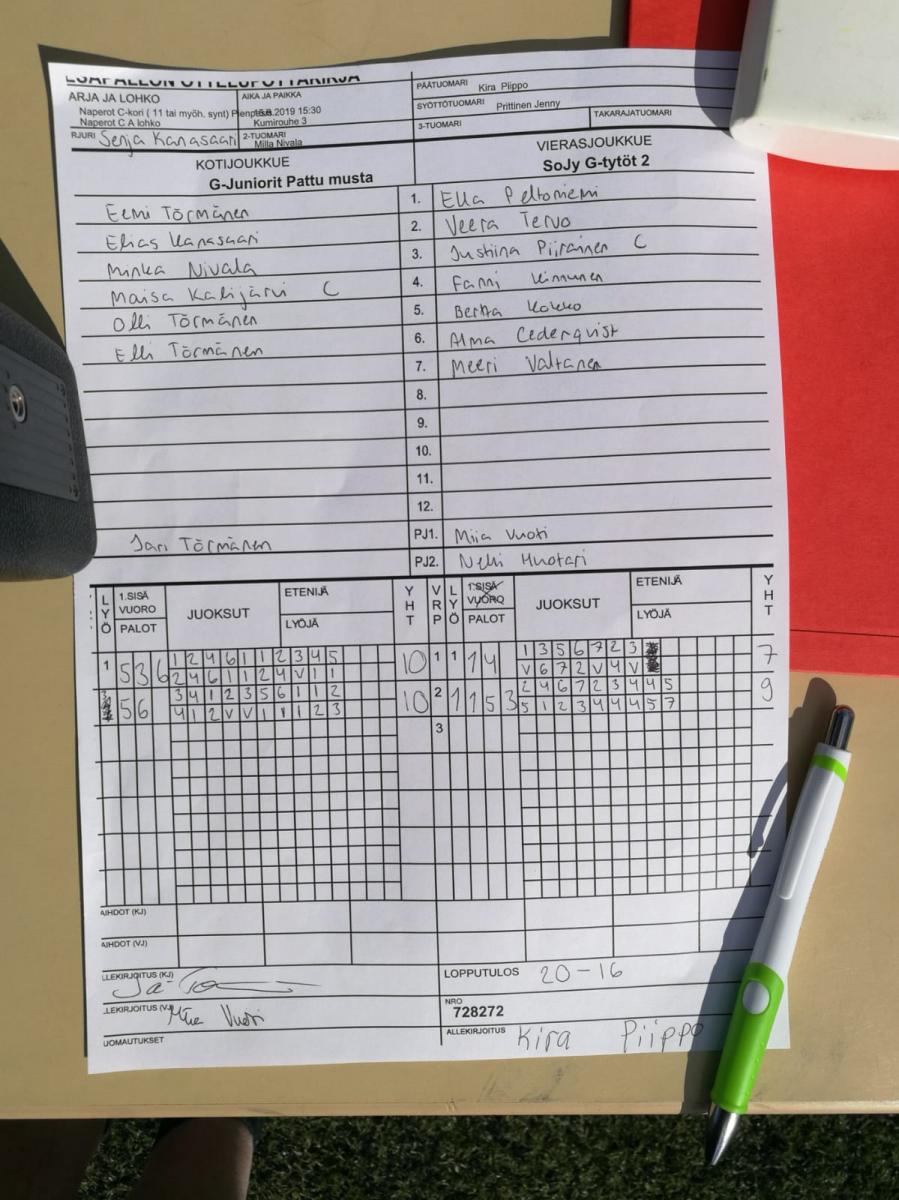 ESÄPALLON OTTELUPÖYTÄKIRJA
ARJA JA LOHKO
Naperot C-kori ( 11 tai myöh. synt) Pienpesis
Naperot C A lohko
AIKA JA PAIKKA
.8.2019 15:30
Kumirouhe 3
PÄÄTUOMARI Kira Piippo
SYÖTTÖTUOMARI Prittinen Jenny
RJURI Senja Kanasaari
2-TUOMARI
Milla Nivala
3-TUOMARI
TAKARAJATUOMARI
KOTIJOUKKUE
G-Juniorit Pattu musta
VIERASJOUKKUE
SoJy G-tytöt 2
Eemi Törmänen 1. Ella Peltoniemi
Elias Kanasaari 2. Veera Tervo
Minka Nivala 3. Justiina Piirainen C
Maisa Kalijärvi C 4. Fanni Kinnunen
Olli Törmänen 5. Bertta Kokko
Elli Törmänen 6. Alma Cederqvist
7. Meeri Valtanen
8.
9.
10.
11.
12.
Jari Törmänen PJ1. Miia Vuoti
PJ2. Nelli Huotari
LYÖ 1.SISÄ VUORO PALOT JUOKSUT ETENIJÄ LYÖJÄ YHT VRP LYÖ 1.SISÄ VUORO PALOT JUOKSUT ETENIJÄ LYÖJÄ YHT
1 5 3 6 1 2 4 6 1 1 2 3 4 5 10 1 1 1 4 1 3 5 6 7 2 3 7
2 4 6 1 1 2 4 V 1 1 V 6 7 2 V 4 V
5 6 3 4 1 2 3 5 6 1 1 2 10 2 1 1 5 3 2 4 6 7 2 3 4 4 5 9
4 1 2 V V 1 1 1 2 3 5 1 2 3 4 4 4 5 7
3
AIHDOT (KJ)
AIHDOT (VJ)
LLEKIRJOITUS (KJ)
LOPPUTULOS 20-16
LLEKIRJOITUS (VJ) Miia Vuoti
NRO
728272
UOMAUTUKSET
ALLEKIRJOITUS Kira Piippo